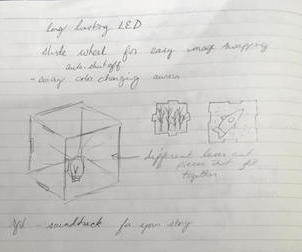 long lasting LED
slide wheel for easy image swapping
auto shut off
- easy color changing
different laser cut
pieces that fit
together
- soundtrack for your story